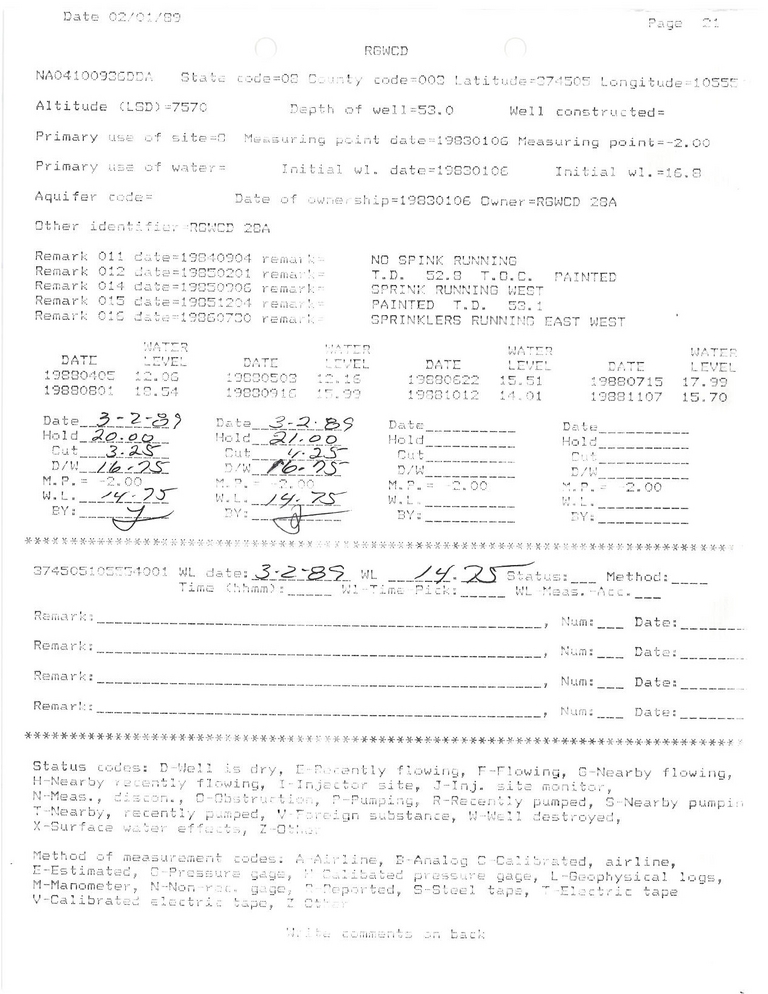 Date 02/01/89 Page 21
RGWCD
NA04100936DDA State code=08 County code=003 Latitude=374505 Longitude=10555
Altitude (LSD)=7570 Depth of well=53.0 Well constructed=
Primary use of site=O Measuring point date=19830106 Measuring point=-2.00
Primary use of water= Initial wl. date=19830106 Initial wl.=16.8
Aquifer code= Date of ownership=19830106 Owner=RGWCD 28A
Other identifier=RGWCD 28A
Remark 011 date=19840904 remark= NO SPINK RUNNING
Remark 012 date=19850201 remark= T.D. 52.8 T.O.C. PAINTED
Remark 014 date=19850906 remark= SPRINK RUNNING WEST
Remark 015 date=19851204 remark= PAINTED T.D. 53.1
Remark 016 date=19860730 remark= SPRINKLERS RUNNING EAST WEST
WATER WATER WATER WATER
DATE LEVEL DATE LEVEL DATE LEVEL DATE LEVEL
19880405 12.06 19880503 12.16 19880622 15.51 19880715 17.99
19880801 18.54 19880916 15.99 19881012 14.01 19881107 15.70
Date 3-2-89 Date 3-2-89 Date Date
Hold 20.00 Hold 21.00 Hold Hold
Cut 3.25 Cut 4.25 Cut Cut
D/W 16.75 D/W 16.75 D/W D/W
M.P.= -2.00 M.P.= -2.00 M.P.= -2.00 M.P.= -2.00
W.L. 14.75 W.L. 14.75 W.L. W.L.
BY: BY: BY: BY:
374505105554001 WL date: 3-2-89 WL 14.75 Status:___ Method:____
Time (hhmm):_____ Wl-Time Pick:_____ WL Meas.-Acc.___
Remark:____, Num:___ Date:____
Remark:____, Num:___ Date:____
Remark:____, Num:___ Date:____
Remark:____, Num:___ Date:____
Status codes: D-Well is dry, E-Recently flowing, F-Flowing, G-Nearby flowing,
H-Nearby recently flowing, I-Injector site, J-Inj. site monitor,
N-Meas., discon., O-Obstruction, P-Pumping, R-Recently pumped, S-Nearby pumpin
T-Nearby, recently pumped, V-Foreign substance, W-Well destroyed,
X-Surface water effects, Z-Other
Method of measurement codes: A-Airline, B-Analog C-Calibrated, airline,
E-Estimated, G-Pressure gage, H-Calibated pressure gage, L-Geophysical logs,
M-Manometer, N-Non-rec. gage, R-Reported, S-Steel tape, T-Electric tape
V-Calibrated electric tape, Z Other
Write comments on back